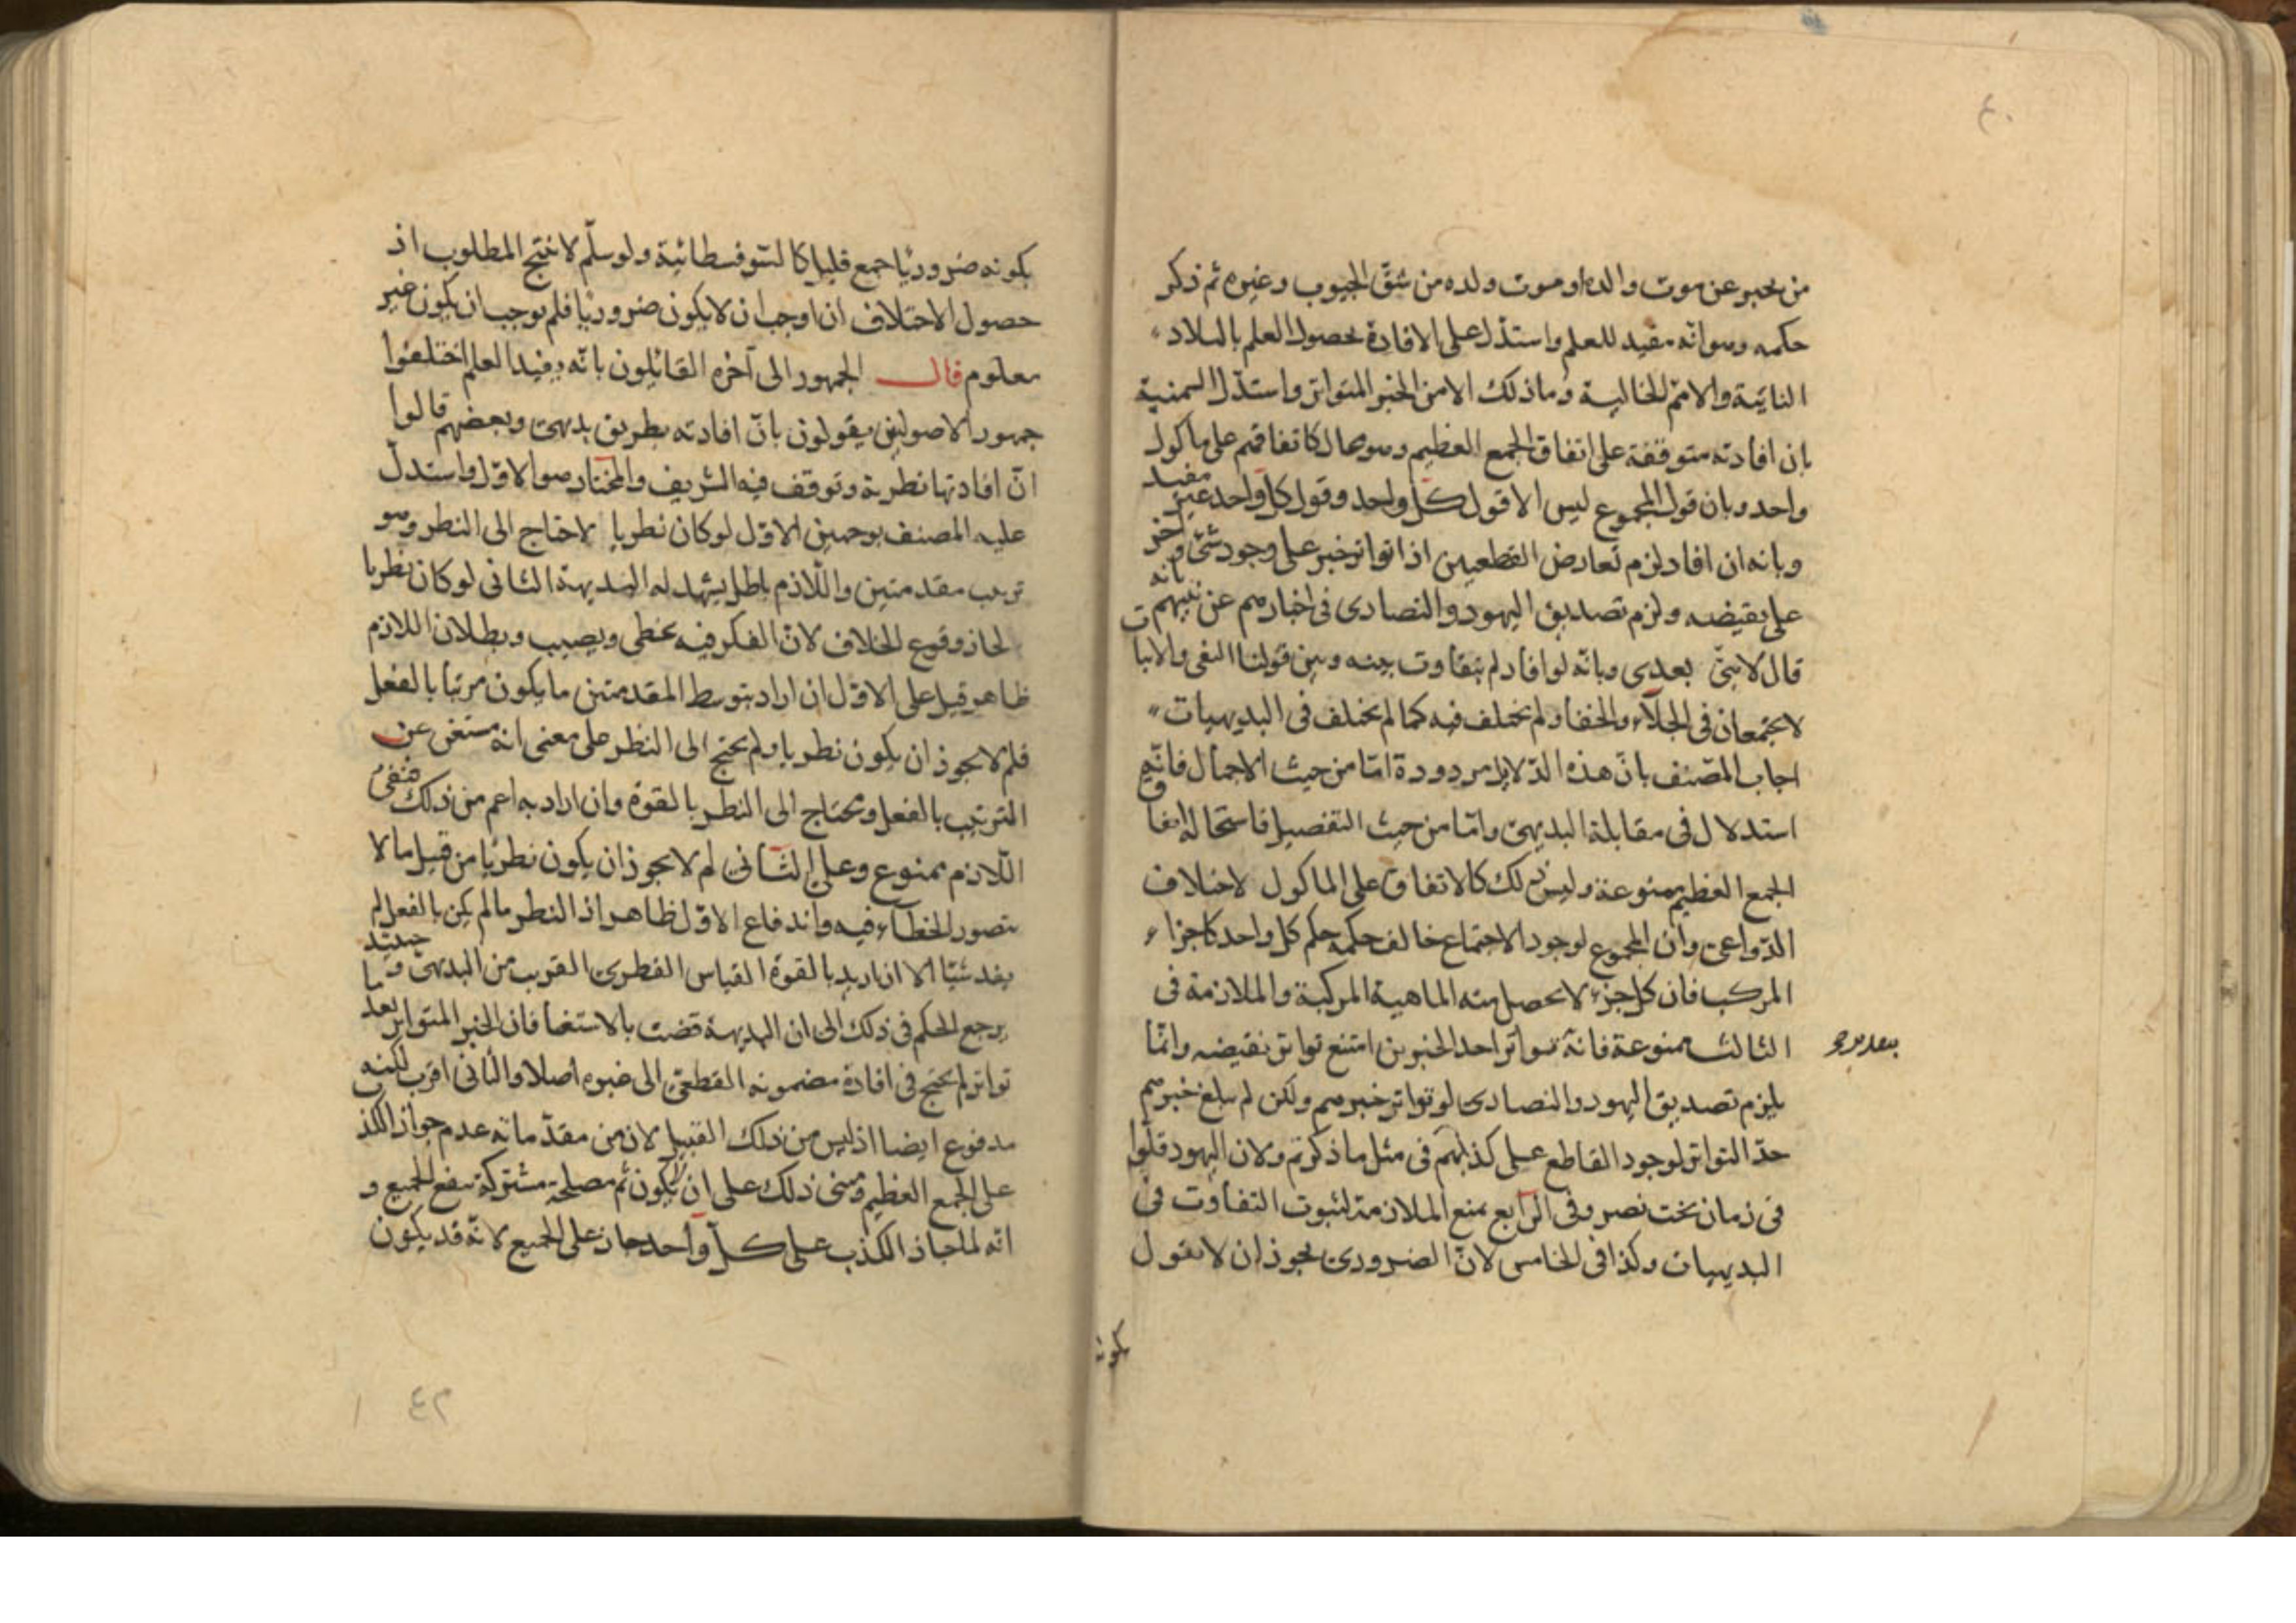 ٤٠
من يخبر عن موت والده او موت ولده من شق الجيوب وغيره ثم ذكر
حكمه وهو انه مفيد للعلم واستدل على الافادة بحصول العلم بالبلاد
النائية والامم الخالية وما ذلك الا من الخبر المتواتر واستدل السمنية
بان افادته متوقفة على اتفاق الجمع العظيم وهو محال كاتفاقهم على ماكول
واحد وبان قول المجموع ليس الا قول كل واحد وقول كل واحد غير مفيد
وبانه ان افاد لزم تعارض القطعيين اذا تواتر خبر على وجود شئ واخر
على نقيضه ولزم تصديق اليهود والنصارى فى اخبارهم عن نبيهم بانه
قال لا نبى بعدى وبانه لو افاد لم يتفاوت بينه وبين قولنا النفى والاثبات
لا يجتمعان فى الجلاء والخفاء ولم يختلف فيه كما لم يختلف فى البديهيات
اجاب المصنف بان هذه الدلايل مردودة اما من حيث الاجمال فانه
استدلال فى مقابلة البديهى واما من حيث التفصيل فاستحالة اتفاق
الجمع العظيم ممنوعة وليس ذلك كالاتفاق على الماكول لاختلاف
الدواعى وان المجموع لوجود الاجتماع خالف حكمه حكم كل واحد كاجزاء
المركب فان كل جزء لا يحصل منه الماهية المركبة والملازمة فى
الثالث ممنوعة فانه تواتر احد الخبرين امتنع تواتر نقيضه وانما
يلزم تصديق اليهود والنصارى لو تواتر خبرهم ولكن لم يبلغ خبرهم
حد التواتر لوجود القاطع على كذبهم فى مثل ما ذكرتم ولان اليهود قلوا
فى زمان بخت نصر وفى الرابع بمنع الملازمة لثبوت التفاوت فى
البديهيات وكذا فى الخامس لان الضرورى يجوز ان لا يقول
بكونه
بكونه ضروريا جمع قليل كالسوفسطائية ولو سلم لا ينتج المطلوب اذ
حصول الاختلاف ان اوجب ان لا يكون ضروريا فلم يوجب ان يكون غير
معلوم قال الجمهور الى آخره القائلون بانه يفيد العلم اختلفوا
جمهور الاصوليين يقولون بان افادته بطريق بديهى وبعضهم قالوا
ان افادتها نظرية وتوقف فيه الشريف والمختار هو الاول واستدل
عليه المصنف بوجهين الاول لو كان نظريا لاحتاج الى النظر وهو
ترتيب مقدمتين واللازم باطل يشهد له البديهة الثانى لو كان نظريا
لجاز وقوع الخلاف لان الفكر فيه يخطى ويصيب وبطلان اللازم
ظاهر قيل على الاول ان اراد بتوسط المقدمتين ما يكون مرتبا بالفعل
فلم لا يجوز ان يكون نظريا ولم يحتج الى النظر على معنى انه مستغنى عن
الترتيب بالفعل ومحتاج الى النظر بالقوة وان اراد به اعم من ذلك فنفى
اللازم ممنوع وعلى الثانى لم لا يجوز ان يكون نظريا من قبيل ما لا
يتصور الخطاء فيه واندفاع الاول ظاهر اذ النظر ما لم يكن بالفعل لم
يفد شيئا الا ان اريد بالقوة القياس الفطرى القريب من البديهى وحينئذ
يرجع الحكم فى ذلك الى ان البديهة قضت بالاستغنا فان الخبر المتواتر بعد ما
تواتر لم يحتج فى افادة مضمونه القطعى الى غيره اصلا والثانى اقرب لكنه
مدفوع ايضا اذ ليس من ذلك القبيل لان من مقدماته عدم جواز الكذب
على الجمع العظيم ومبنى ذلك على ان لا يكون ثم مصلحة مشتركة تنفع الجميع و
انه لما جاز الكذب على كل واحد جاز على الجميع لانه قد يكون